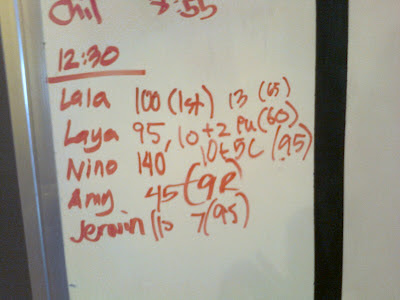 Chil 7:55
12:30
Lala 100 (1st) 13 (65)
Laya 95, 10+2 PU (60)
Nino 140 10+5C (95)
Amy 45 (9R
Jerwin 7 (95)